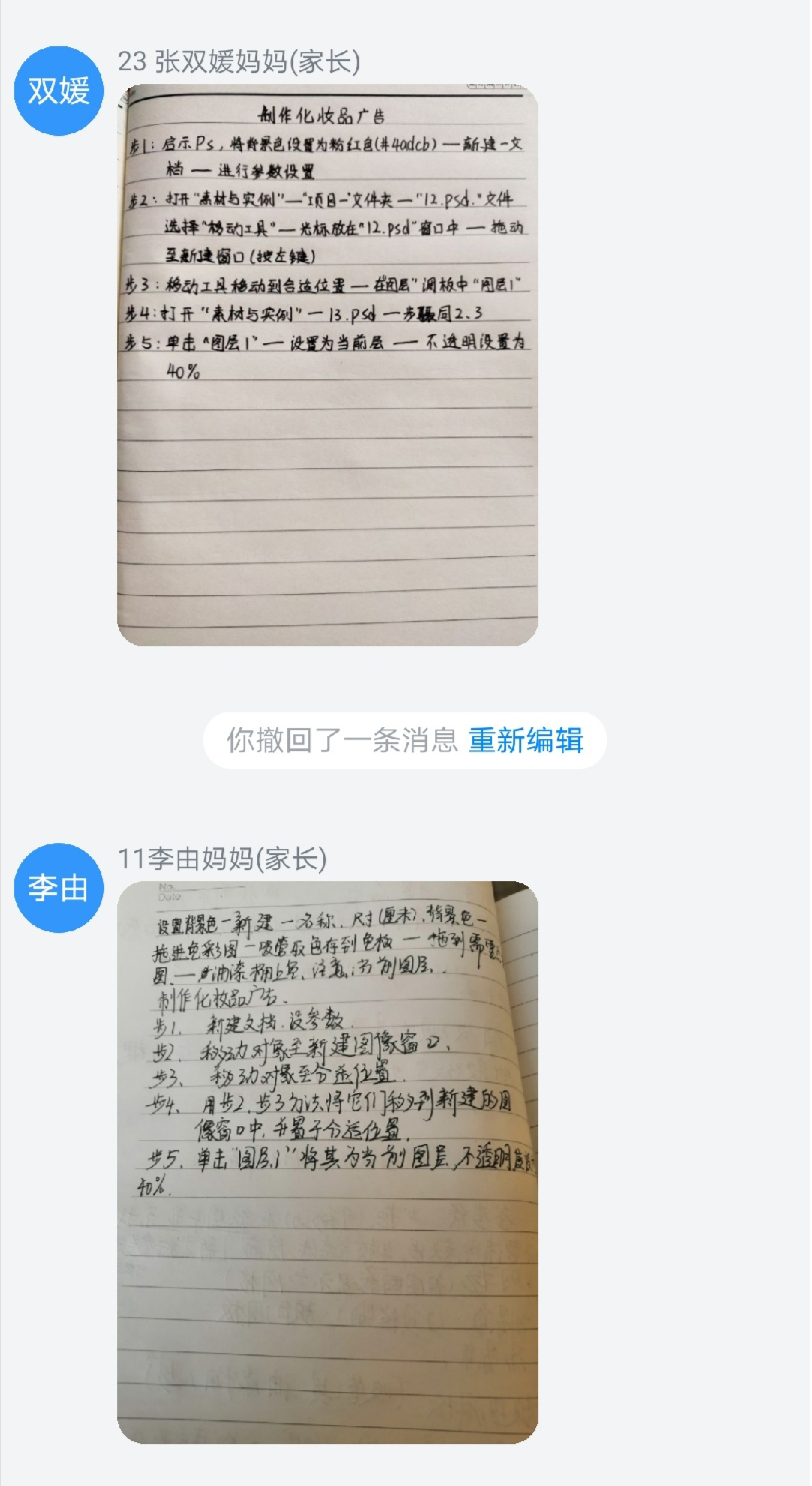 双媛
23 张双媛妈妈(家长)
制作化妆品广告
步1：启示Ps，将背景色设置为粉红色(#f40adcb)—新建一文
档 — 进行参数设置
步2：打开“素材与实例”—“项目一”文件夹—“12.psd.”文件
选择“移动工具”—光标放在“12.psd”窗口中 — 拖动
至新建窗口(按左键)
步3：移动工具移动到合适位置 — 在图层”调板中“图层1”
步4：打开“素材与实例”— 13.psd —步骤同2.3
步5：单击“图层1”— 设置为当前层 — 不透明设置为
40%
你撤回了一条消息 重新编辑
李由
11李由妈妈(家长)
No.
Date
设置背景色一新建 一名称、尺寸(厘米)、背景色一
拖进色彩图一吸管取色存到色板 — 拖到需
图.— 油漆桶上色、注意:当前图层.
制作化妆品广告.
步1. 新建文档.设参数.
步2. 移动对象至新建图像窗口.
步3. 移动对象至合适位置.
步4. 用步2.步3方法将它们移到新建的图
像窗口中,并置于合适位置.
步5. 单击“图层1”将其为当前图层,不透明度
40%.